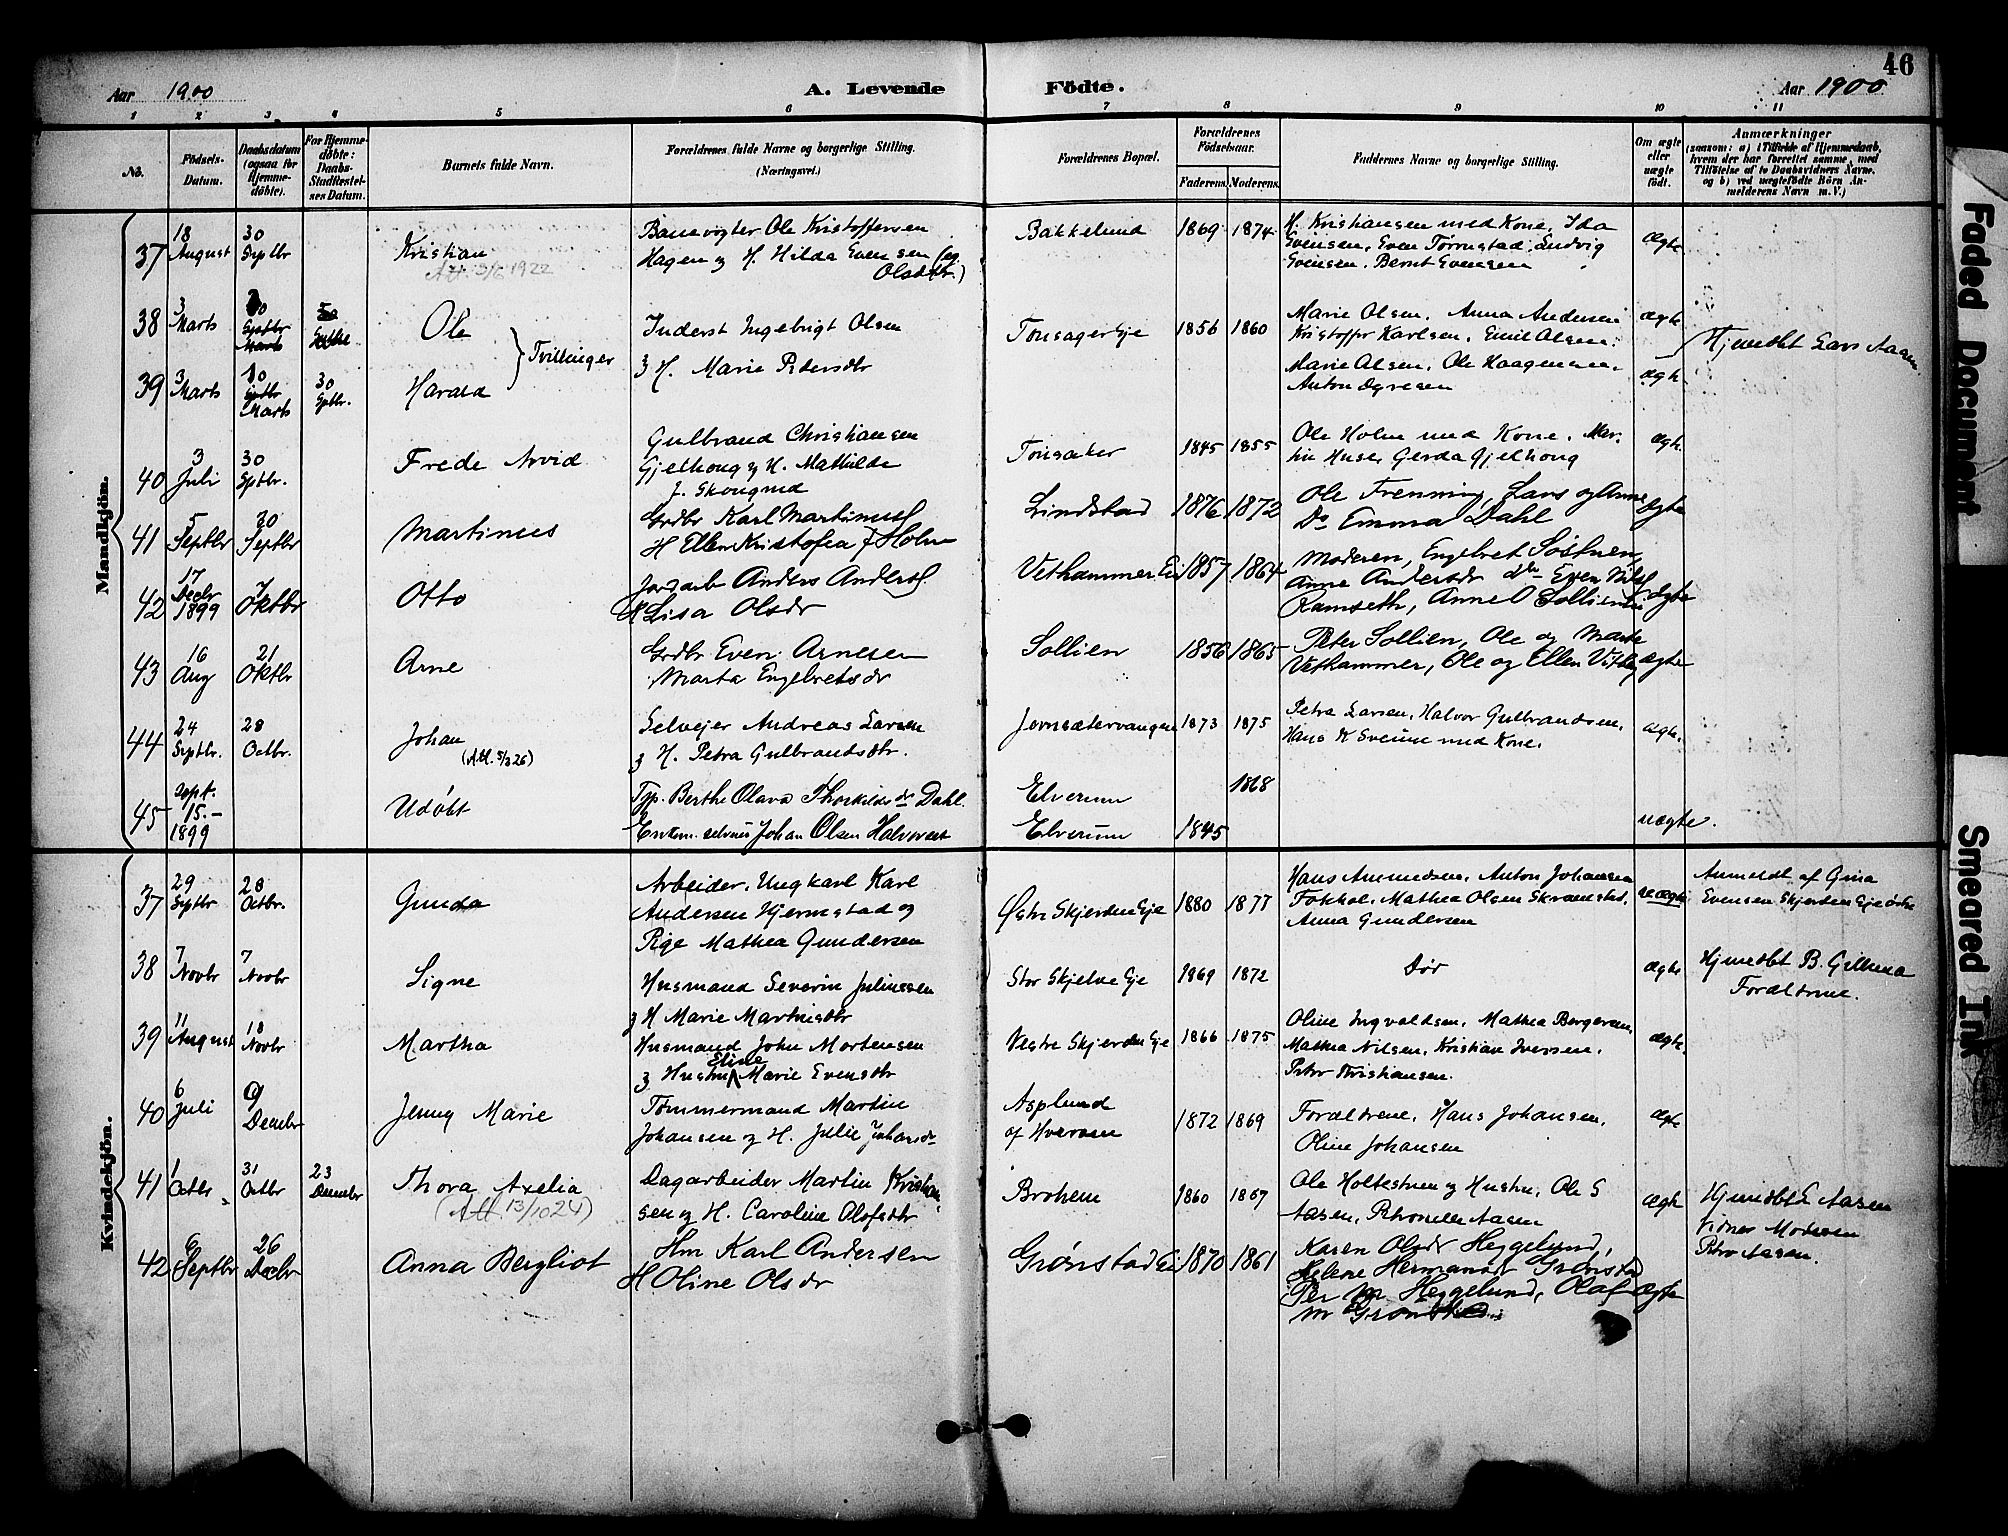 46
Aar 1900 A. Levende Födte. Aar 1900
1 2 3 4 5 6 7 8 9 10 11
No.
Födsels-Datum.
Daabsdatum (ogsaa for Hjemme-döbte).
For Hjemme-döbte: Daabs-Stadfæstelses Datum.
Barnets fulde Navn.
Forældrenes fulde Navne og borgerlige Stilling.
(Næringsvei.)
Forældrenes Bopæl.
Forældrenes Födselsaar.
Faderens. Moderens.
Faddernes Navne og borgerlige Stilling.
Om ægte eller uægte födt.
Anmærkninger
(saasom: a) i Tilfælde af Hjemmedaab, hvem der har forrettet samme, med Tilföielse af to Daabsvidners Navne, og b) ved uægtefödte Börn Anmelderens Navn m. V.)
Mandkjön.
37 18 August 30 Septbr Kristian
Att. 1922
Banevogter Ole Kristoffersen
Hagen og H. Hilda Evensen (eg. Olsdtr.)
Bakkelund 1869 1874
H. Kristiansen med Kone, Ida
Evensen, Even Tørrustad, Ludvig
Evensen, Bernt Evensen
ægte
38 3 Marts Ole
Tvillinger
Inderst Ingebrigt Olsen
Tonsager Eje 1856 1860
Marie Olsen, Anna Andersen
Kristoffer Karlsen, Emil Olsen
ægte
Hjemdbt Lars Aasen
39 3 Marts 10 Marts 30 Sptbr. Harald
og H. Marie Pedersdtr
Marie Olsen, Ole Haagensen,
Anton
ægte
40 3 Juli 30 Sptbr. Frede Arvid
Gulbrand Christiansen
Gjelhoug og H. Mathilde
f. Skougrud
Tonsaker 1845 1855
Ole Holm med Kone, Mar-
Huser, Gerda Gjelhoug
ægte
41 5 Septbr 30 Septbr Martinus
Grdbr Karl Martinus
H Ellen Kristofia f Holm
Lindstad 1876 1872
Ole Frenning, Lars og Anne
Do Emma Dahl
ægte
42 17 Decbr 1899 7 Oktbr Otto
Anders Anders
H Lisa Olsdr
Vethammer Ei 1857 1864
Moderen, Engebret
Anne Andersdr Even Nils
Ramseth, Anne Sollien
ægte
43 16 Aug 21 Oktbr Arne
Grdbr Even Arnesen
Marta Engebretsdr
Sollien 1856 1865
Peter Sollien, Ole og Marte
Vethammer, Ole og Ellen
ægte
44 24 Septbr. 28 Octbr. Johan
(Att. 5/3 26)
Selvejer Andreas Larsen
og H. Petra Gulbrandsdtr.
Jernsætervangen 1873 1875
Petra Larsen, Halvor Gulbrandsen,
Hans K Sveum med Kone.
ægte.
45 Sept. 15.- 1899 Udöbt
Berthe Olava Thorkildsdr Dahl.
Elverum 1868
Johan Olsen
Elverum 1845
uægte.
Kvindekjön.
37 29 Septbr 28 Octbr. Gunda
Arbeider, Ungkarl Karl
Andersen Hjermstad og
Pige Mathea Gundersen
Østre Skjerden Eje 1880 1877
Hans Amundsen, Anton Johansen
Fokhol, Mathea Olsen Skramstad,
Anna Gundersen
uægte
Anmeldt af Gina
Evensen Skjerden Eje østre
38 7 Novbr 7 Novbr Signe
Husmand Severin Juliussen
og H Marie Martinsdtr
Stor Skjelve Eje 1869 1872
død
ægte
Hjemdbt B. Gillund
Forældrene.
39 11 August 18 Novbr Martha
Husmand John Mortensen
og Hustru Eline Marie Evensdtr
Vestre Skjerden Eje 1866 1875
Oline Ingvaldsen, Mathea Bergersen,
Mathea Nilsen, Kristian Iversen,
Peter Kristiansen.
ægte.
40 6 Juli 9 Decmbr Jenny Marie
Tømmermand Martin
Johansen og H. Julie Johansdr
Asplund
af Hverven 1872 1869
Forældrene, Hans Johansen,
Oline Johansen
ægte
41 1 Octbr 31 Octbr 23 Decmbr Thora Axelia
(Att. 13/10 24)
Dagarbeider Martin Kristian-
sen og H. Caroline Olofsdtr
Broheim 1860 1867
Ole Holtestuen og Hustru, Ole S
Aasen, Petronelle Aasen
ægte
Hjemdbt E Aasen
Vidner Moderen
Petro Aasen.
42 6 Septbr 26 Decbr Anna Bergliot
Hm Karl Andersen
H Oline Olsdr
Grönstad Ei 1870 1861
Karen Olsdr Heggelund,
Helene Hermansdr Grönstad
Per M Heggelund, Olaf
M Grönstad
ægte
Faded Document
Smeared Ink